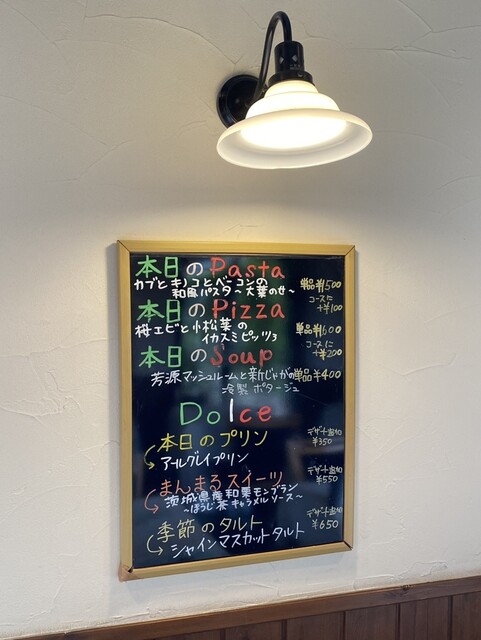 本日のPasta
カブとキノコとベーコンの
和風パスタ～大葉のせ～
単品¥1500
コースに
+¥100
本日のPizza
桜エビと小松菜の
イカスミピッツァ
単品¥1600
コースに
+¥200
本日のSoup
芳源マッシュルームと新じゃがの
冷製ポタージュ
単品¥400
Dolce
本日のプリン
アールグレイプリン
デザート追加
¥350
まんまるスイーツ
茨城県産和栗モンブラン
～ほうじ茶キャラメルソース～
デザート追加
¥550
季節のタルト
シャインマスカットタルト
デザート追加
¥650